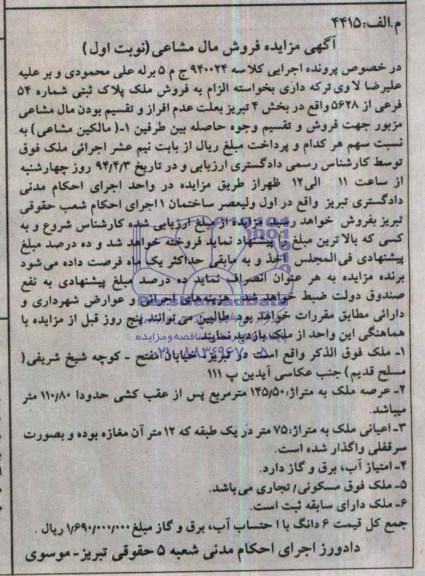 م.الف:۴۴۱۵
آگهی مزایده فروش مال مشاعی (نوبت اول)
در خصوص پرونده اجرایی کلاسه ۹۴۰۰۲۴ ج م ۵ برله علی محمودی و بر علیه
علیرضا لاوی ترکه داری بخواسته الزام به فروش ملک پلاک ثبتی شماره ۵۴
فرعی از ۵۶۲۸ واقع در بخش ۴ تبریز بعلت عدم افراز و تقسیم بودن مال مشاعی
مزبور جهت فروش و تقسیم وجوه حاصله بین طرفین ۱-( مالکین مشاعی) به
نسبت سهم هر کدام و پرداخت مبلغ ریال از بابت نیم عشر اجرائی ملک فوق
توسط کارشناس رسمی دادگستری ارزیابی و در تاریخ ۹۴/۴/۳ روز چهارشنبه
از ساعت ۱۱ الی ۱۲ ظهر از طریق مزایده در واحد اجرای احکام مدنی
دادگستری تبریز واقع در اول ولیعصر ساختمان ۱ اجرای احکام شعب حقوقی
تبریز بفروش خواهد رسید. مزایده از مبلغ ارزیابی شده کارشناس شروع و به
کسی که بالاترین مبلغ را پیشنهاد نماید فروخته خواهد شد و ده درصد مبلغ
پیشنهادی فی المجلس اخذ و به مابقی حداکثر یک ماه فرصت داده می شود
برنده مزایده به هر عنوان انصراف نماید ده درصد مبلغ پیشنهادی به نفع
صندوق دولت ضبط خواهد شد. هزینه های اجرائی و عوارض شهرداری و
دارائی مطابق مقررات خواهد بود طالبین می توانند پنج روز قبل از مزایده با
هماهنگی این واحد از ملک بازدید نمایند
۱- ملک فوق الذکر واقع است در تبریز خیابان مفتح - کوچه شیخ شریفی(
مسلح قدیم) جنب عکاسی آیدین پ ۱۱۱
۲- عرصه ملک به متراژ: ۱۴۵/۵۰ مترمربع پس از عقب کشی حدودا ۱۱۰/۸۰ متر
میباشد.
۳- اعیانی ملک به متراژ: ۷۵ متر در یک طبقه که ۱۲ متر آن مغازه بوده و بصورت
سرقفلی واگذار شده است.
۴- امتیاز آب، برق و گاز دارد.
۵- ملک فوق مسکونی/ تجاری می باشد.
۶- ملک دارای سابقه ثبت است.
جمع کل قیمت ۶ دانگ با احتساب آب، برق و گاز مبلغ ۱/۶۹۰/۰۰۰/۰۰۰ ریال .
دادورز اجرای احکام مدنی شعبه ۵ حقوقی تبریز- موسوی